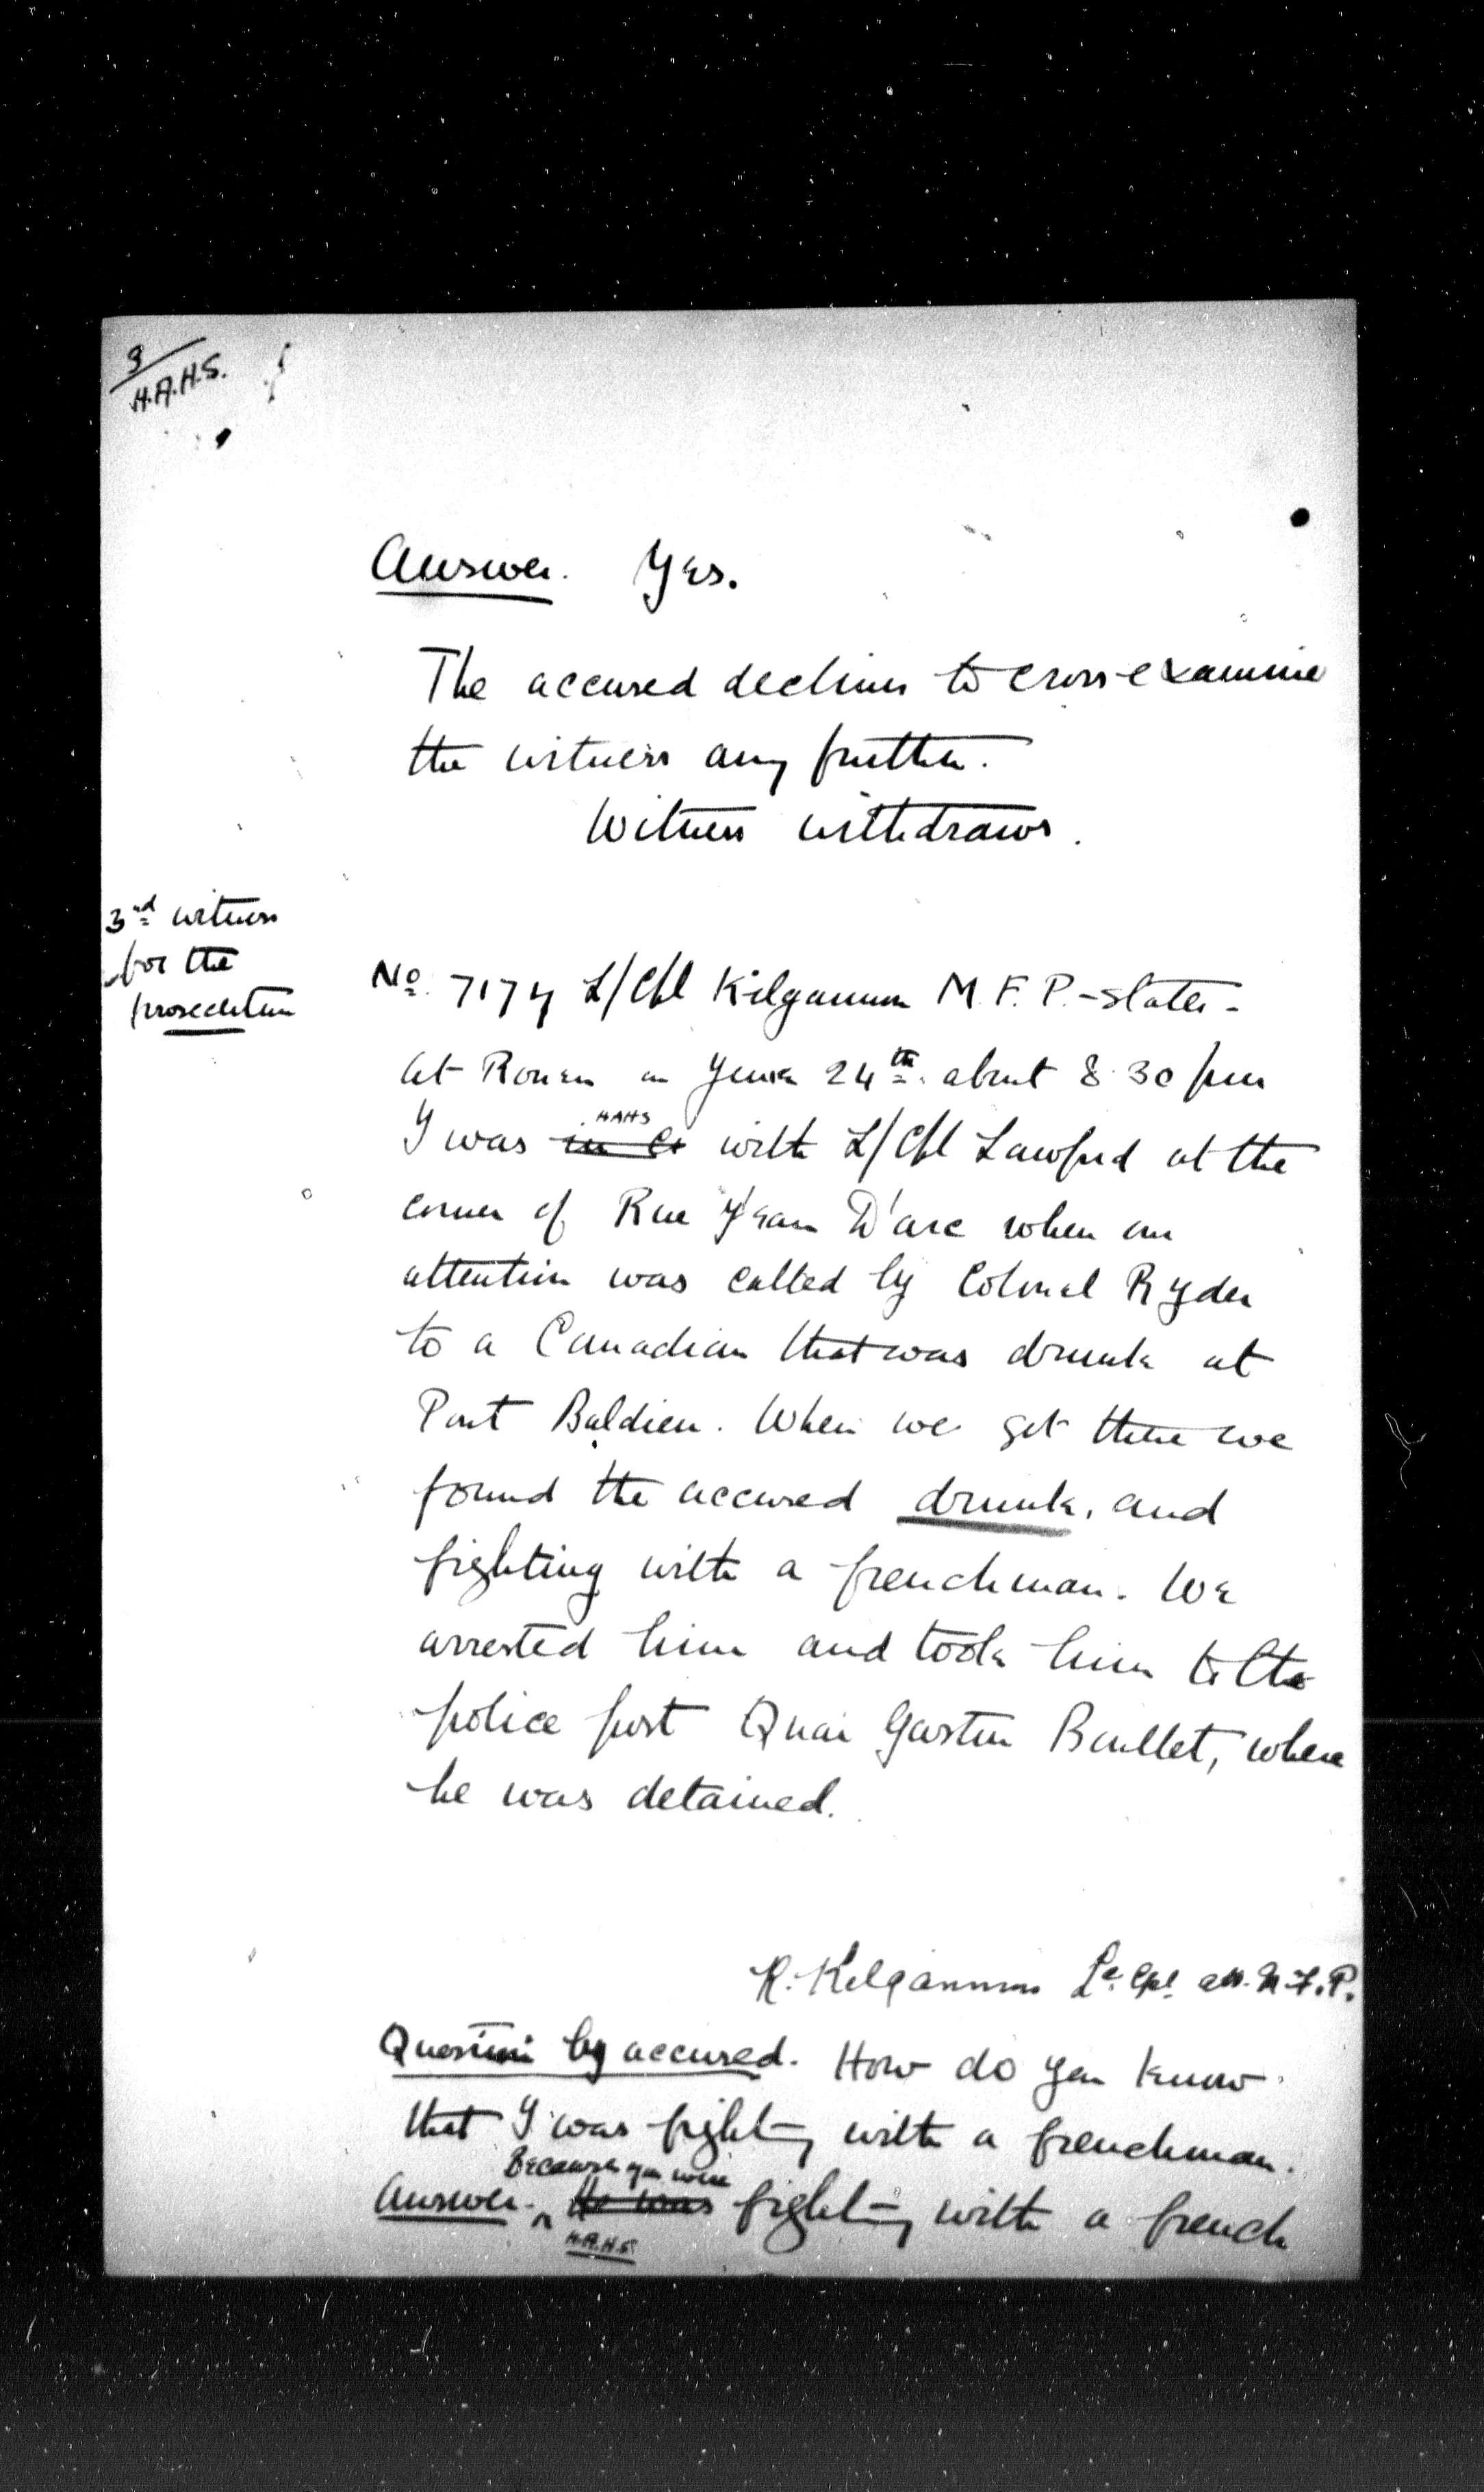 3
H.A.H.S.
Answer. Yes.
The accused declines to cross-examine
the witness any further.
Witness withdraws.
3rd witness
for the
prosecution
No. 7174 L/Cpl Kilgannon M.F.P. - states -
At Rouen on June 24th. about 8.30 pm
HAHS
I was in Ct with L/Cpl Lawford at the
corner of Rue Jean D'arc when our
attention was called by Colonel Ryder
to a Canadian that was drunk at
Pont Baldieu. When we got there we
found the accused drunk, and
fighting with a frenchman. We
arrested him and took him to the
police post Quai Gaston Boullet, where
he was detained.
Kilgannon Lce. Cpl. att. M.F.P.
Question by accused. How do you know
that I was fighting with a frenchman.
Because you were
Answer. He was fighting with a french
H.A.H.S.